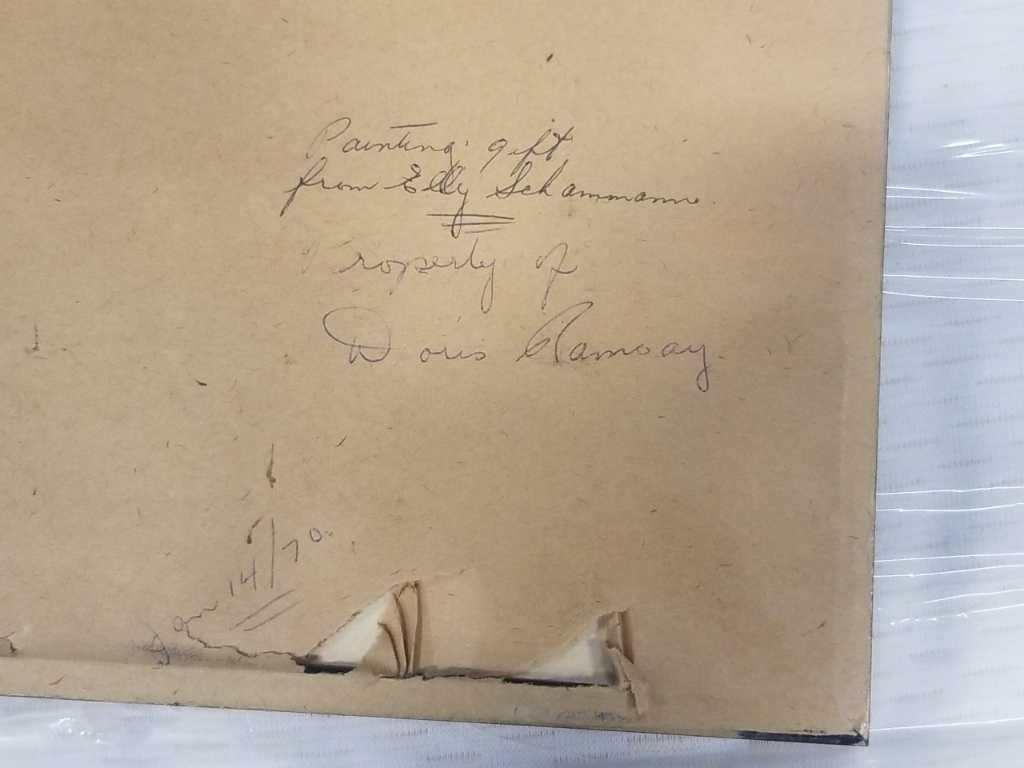 Painting: gift
from Elly Schammann.
Property of
Doris Ramsay.
Jan 14/70.